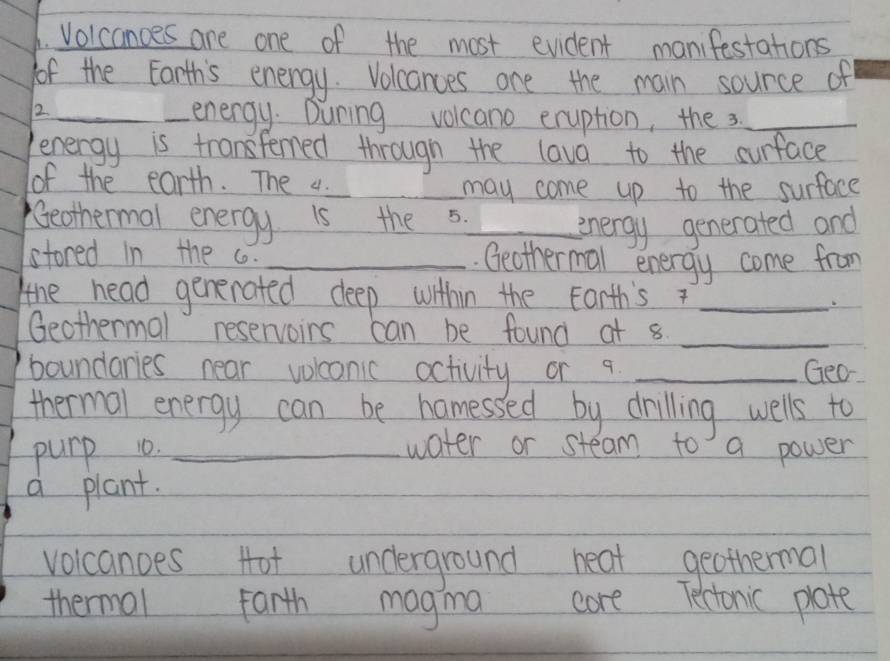 1. Volcanoes are one of the most evident manifestations
of the Earth's energy. Volcanoes are the main source of
2. ____ energy. During volcano eruption, the 3. ____
energy is transferred through the lava to the surface
of the earth. The 4. ____ may come up to the surface
Geothermal energy is the 5. ____ energy generated and
stored in the 6. ____. Geothermal energy come from
the head generated deep within the Earth's 7 ____.
Geothermal reservoirs can be found at 8. ____
boundaries near volcanic activity or 9. ____ Geo-
thermal energy can be harnessed by drilling wells to
purp 10. ____ water or steam to a power
a plant.
Volcanoes Hot underground heat geothermal
thermal Earth magma core Tectonic plate